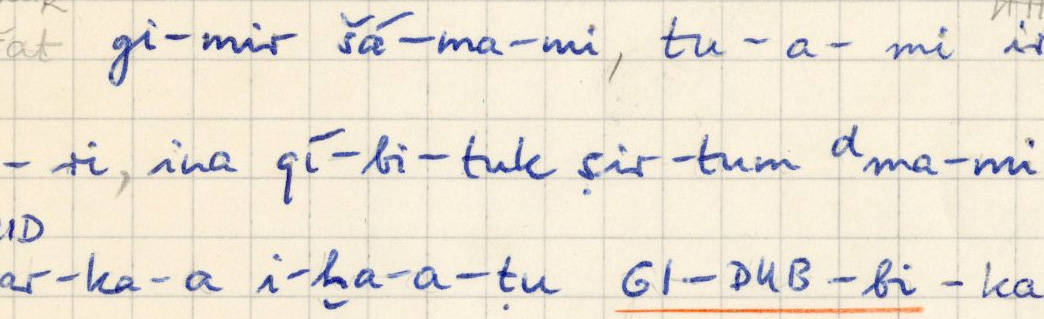 at gi-mir šá-ma-mi, tu-a-mi ir
-ri, ina qí-bi-tuk ṣir-tum ᵈma-mi
UD
ar-ka-a i-ḫa-a-ṭu GI-DUB-bi-ka